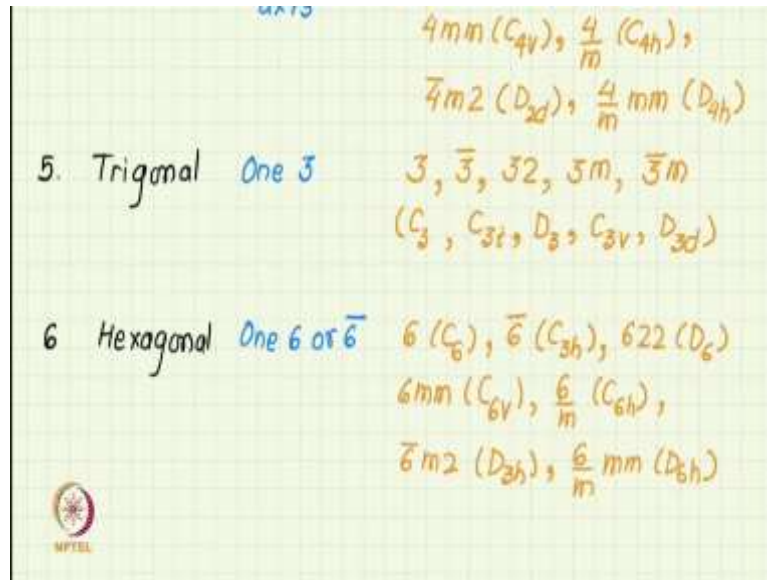 axis
4mm (C4v), 4/m (C4h),
4̅m2 (D2d), 4/m mm (D4h)
5. Trigonal One 3 3, 3̅, 32, 3m, 3̅m
(C3, C3i, D3, C3v, D3d)
6 Hexagonal One 6 or 6̅ 6 (C6), 6̅ (C3h), 622 (D6)
6mm (C6v), 6/m (C6h),
6̅m2 (D3h), 6/m mm (D6h)
NPTEL